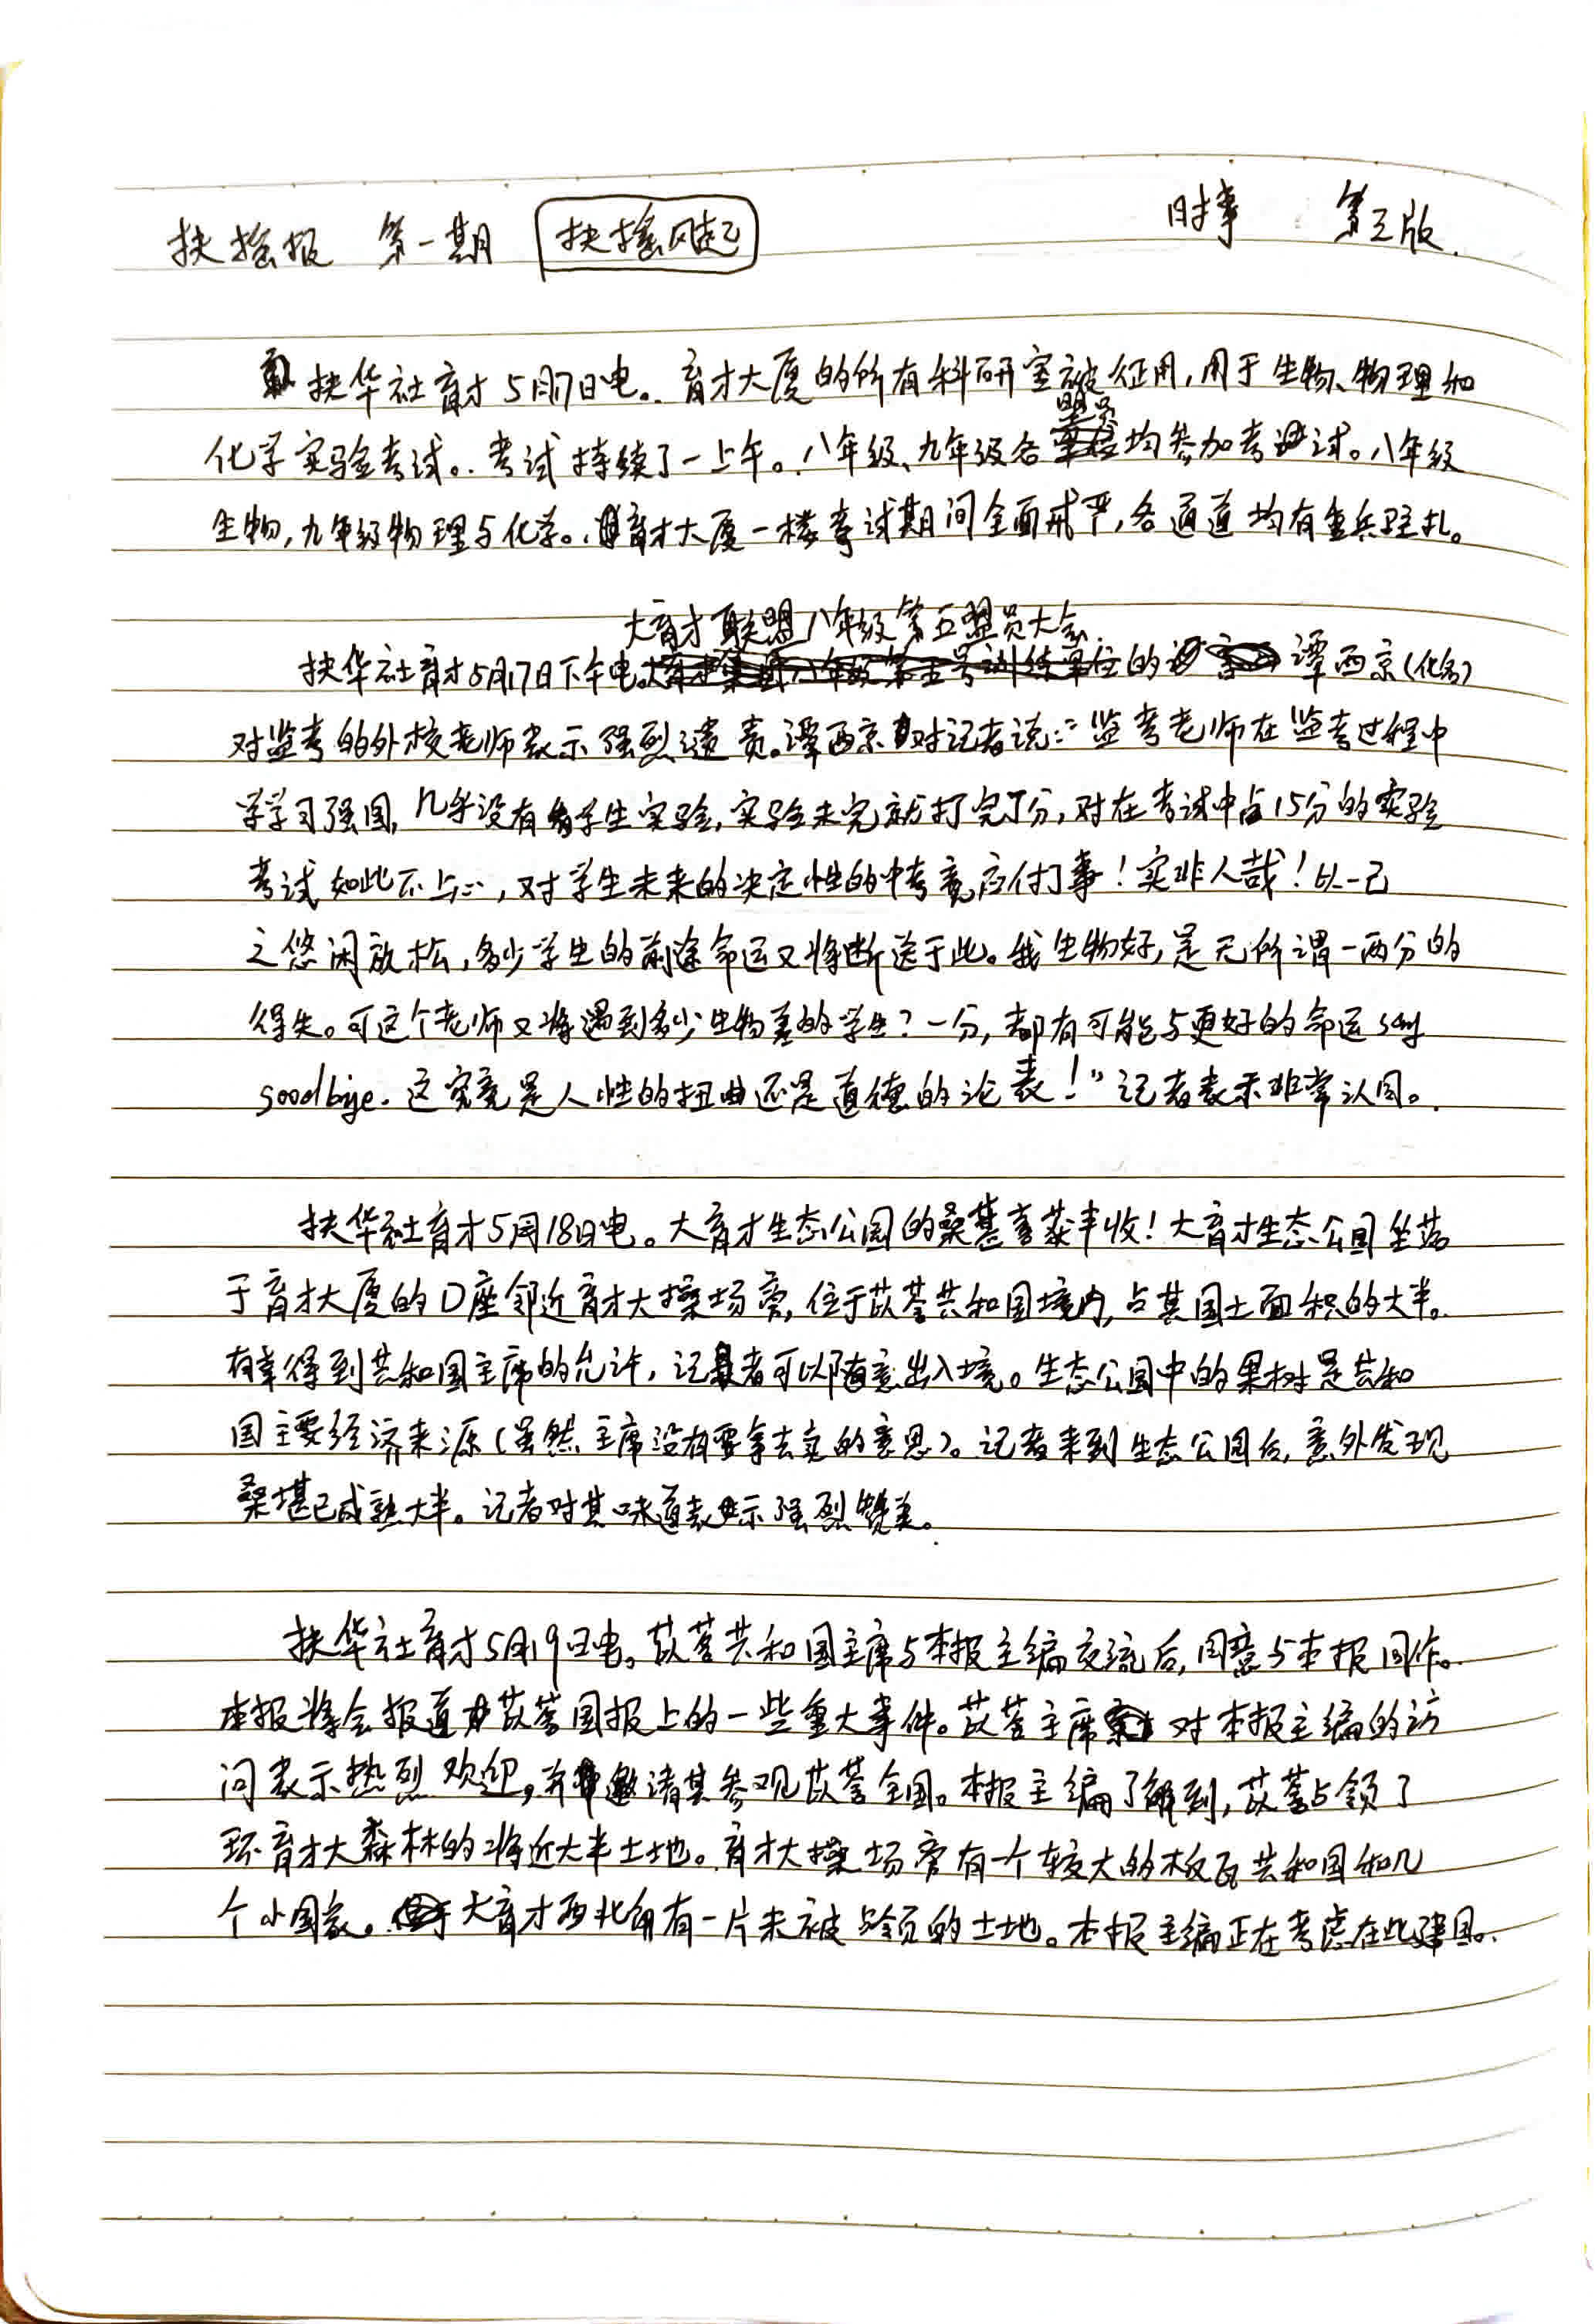 扶摇报 第一期 扶摇风起 时事 第三版
扶华社育才5月17日电。育才大厦的所有科研室被征用,用于生物、物理和
化学实验考试。考试持续了一上午。八年级、九年级各盟员均参加考试。八年级
生物,九年级物理与化学。育才大厦一楼考试期间全面戒严,各通道均有重兵驻扎。
大育才联盟八年级第五盟员大会
扶华社育才5月17日下午电。的谭西京(化名)
对监考的外校老师表示强烈谴责。谭西京对记者说:“监考老师在监考过程中
学学习强国,几乎没有看学生实验,实验未完就打完了分,对在考试中占15分的实验
考试如此不上心,对学生未来的决定性的中考竟应付了事!实非人哉!以一己
之悠闲放松,多少学生的前途命运又将断送于此。我生物好,是无所谓一两分的
得失。可这个老师又将遇到多少生物差的学生?一分,都有可能与更好的命运say
goodbye.这究竟是人性的扭曲还是道德的沦丧!”记者表示非常认同。
扶华社育才5月18日电。大育才生态公园的桑葚喜获丰收!大育才生态公园坐落
于育才大厦的D座邻近育才大操场旁,位于苡蓉共和国境内,占其国土面积的大半。
有幸得到共和国主席的允许,记者可以随意出入境。生态公园中的果树是共和
国主要经济来源(虽然主席没有要拿去卖的意思)。记者来到生态公园后,意外发现
桑堪已成熟大半。记者对其味道表示强烈赞美。
扶华社育才5月19日电。苡蓉共和国主席与本报主编交流后,同意与本报同作。
本报将会报道苡蓉国报上的一些重大事件。苡蓉主席对本报主编的访
问表示热烈欢迎,并邀请其参观苡蓉全国。本报主编了解到,苡蓉占领了
环育才大森林的将近大半土地。育才大操场旁有一个较大的枚瓦共和国和几
个小国家。大育才西北角有一片未被占领的土地。本报主编正在考虑在此建国。